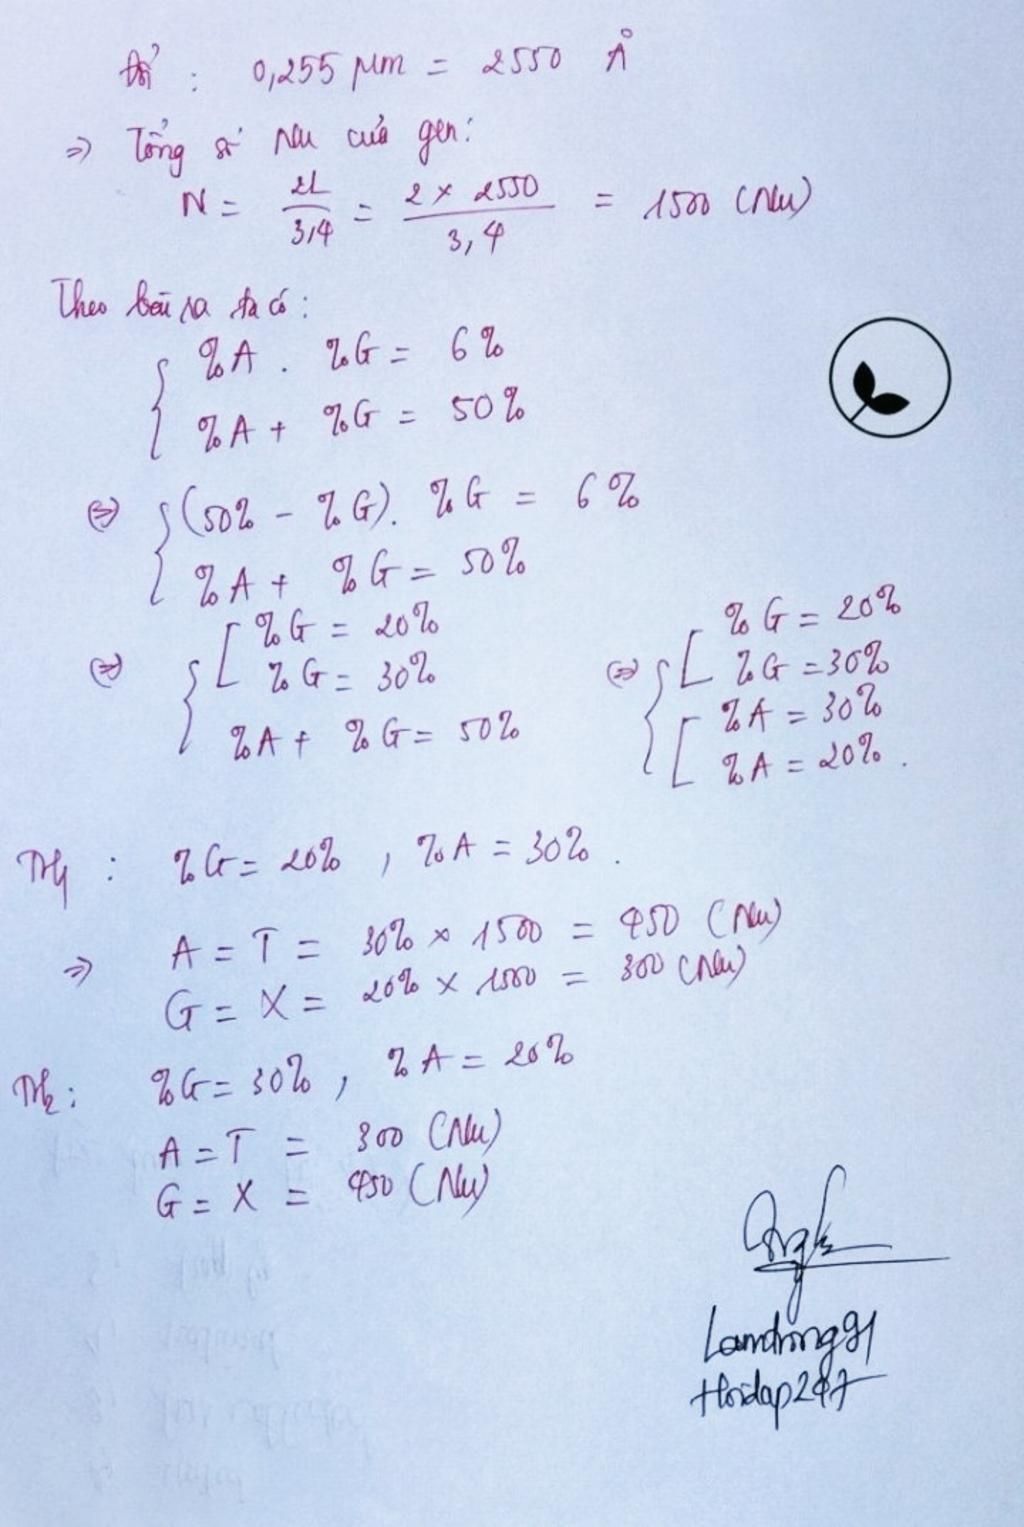 Đổi : 0,255 µm = 2550 Å
=> Tổng số Nu của gen:
N = 2L/3,4 = 2 × 2550/3,4 = 1500 (Nu)
Theo bài ra ta có:
{ %A . %G = 6%
%A + %G = 50%
<=> { (50% - %G). %G = 6%
%A + %G = 50%
<=> { [ %G = 20%
%G = 30%
%A + %G = 50%
<=> { [ %G = 20%
%G = 30%
[ %A = 30%
%A = 20% .
TH1 : %G = 20% , %A = 30% .
=> A = T = 30% × 1500 = 450 (Nu)
G = X = 20% × 1500 = 300 (Nu)
TH2 : %G = 30% , %A = 20%
A = T = 300 (Nu)
G = X = 450 (Nu)
Hoidap247